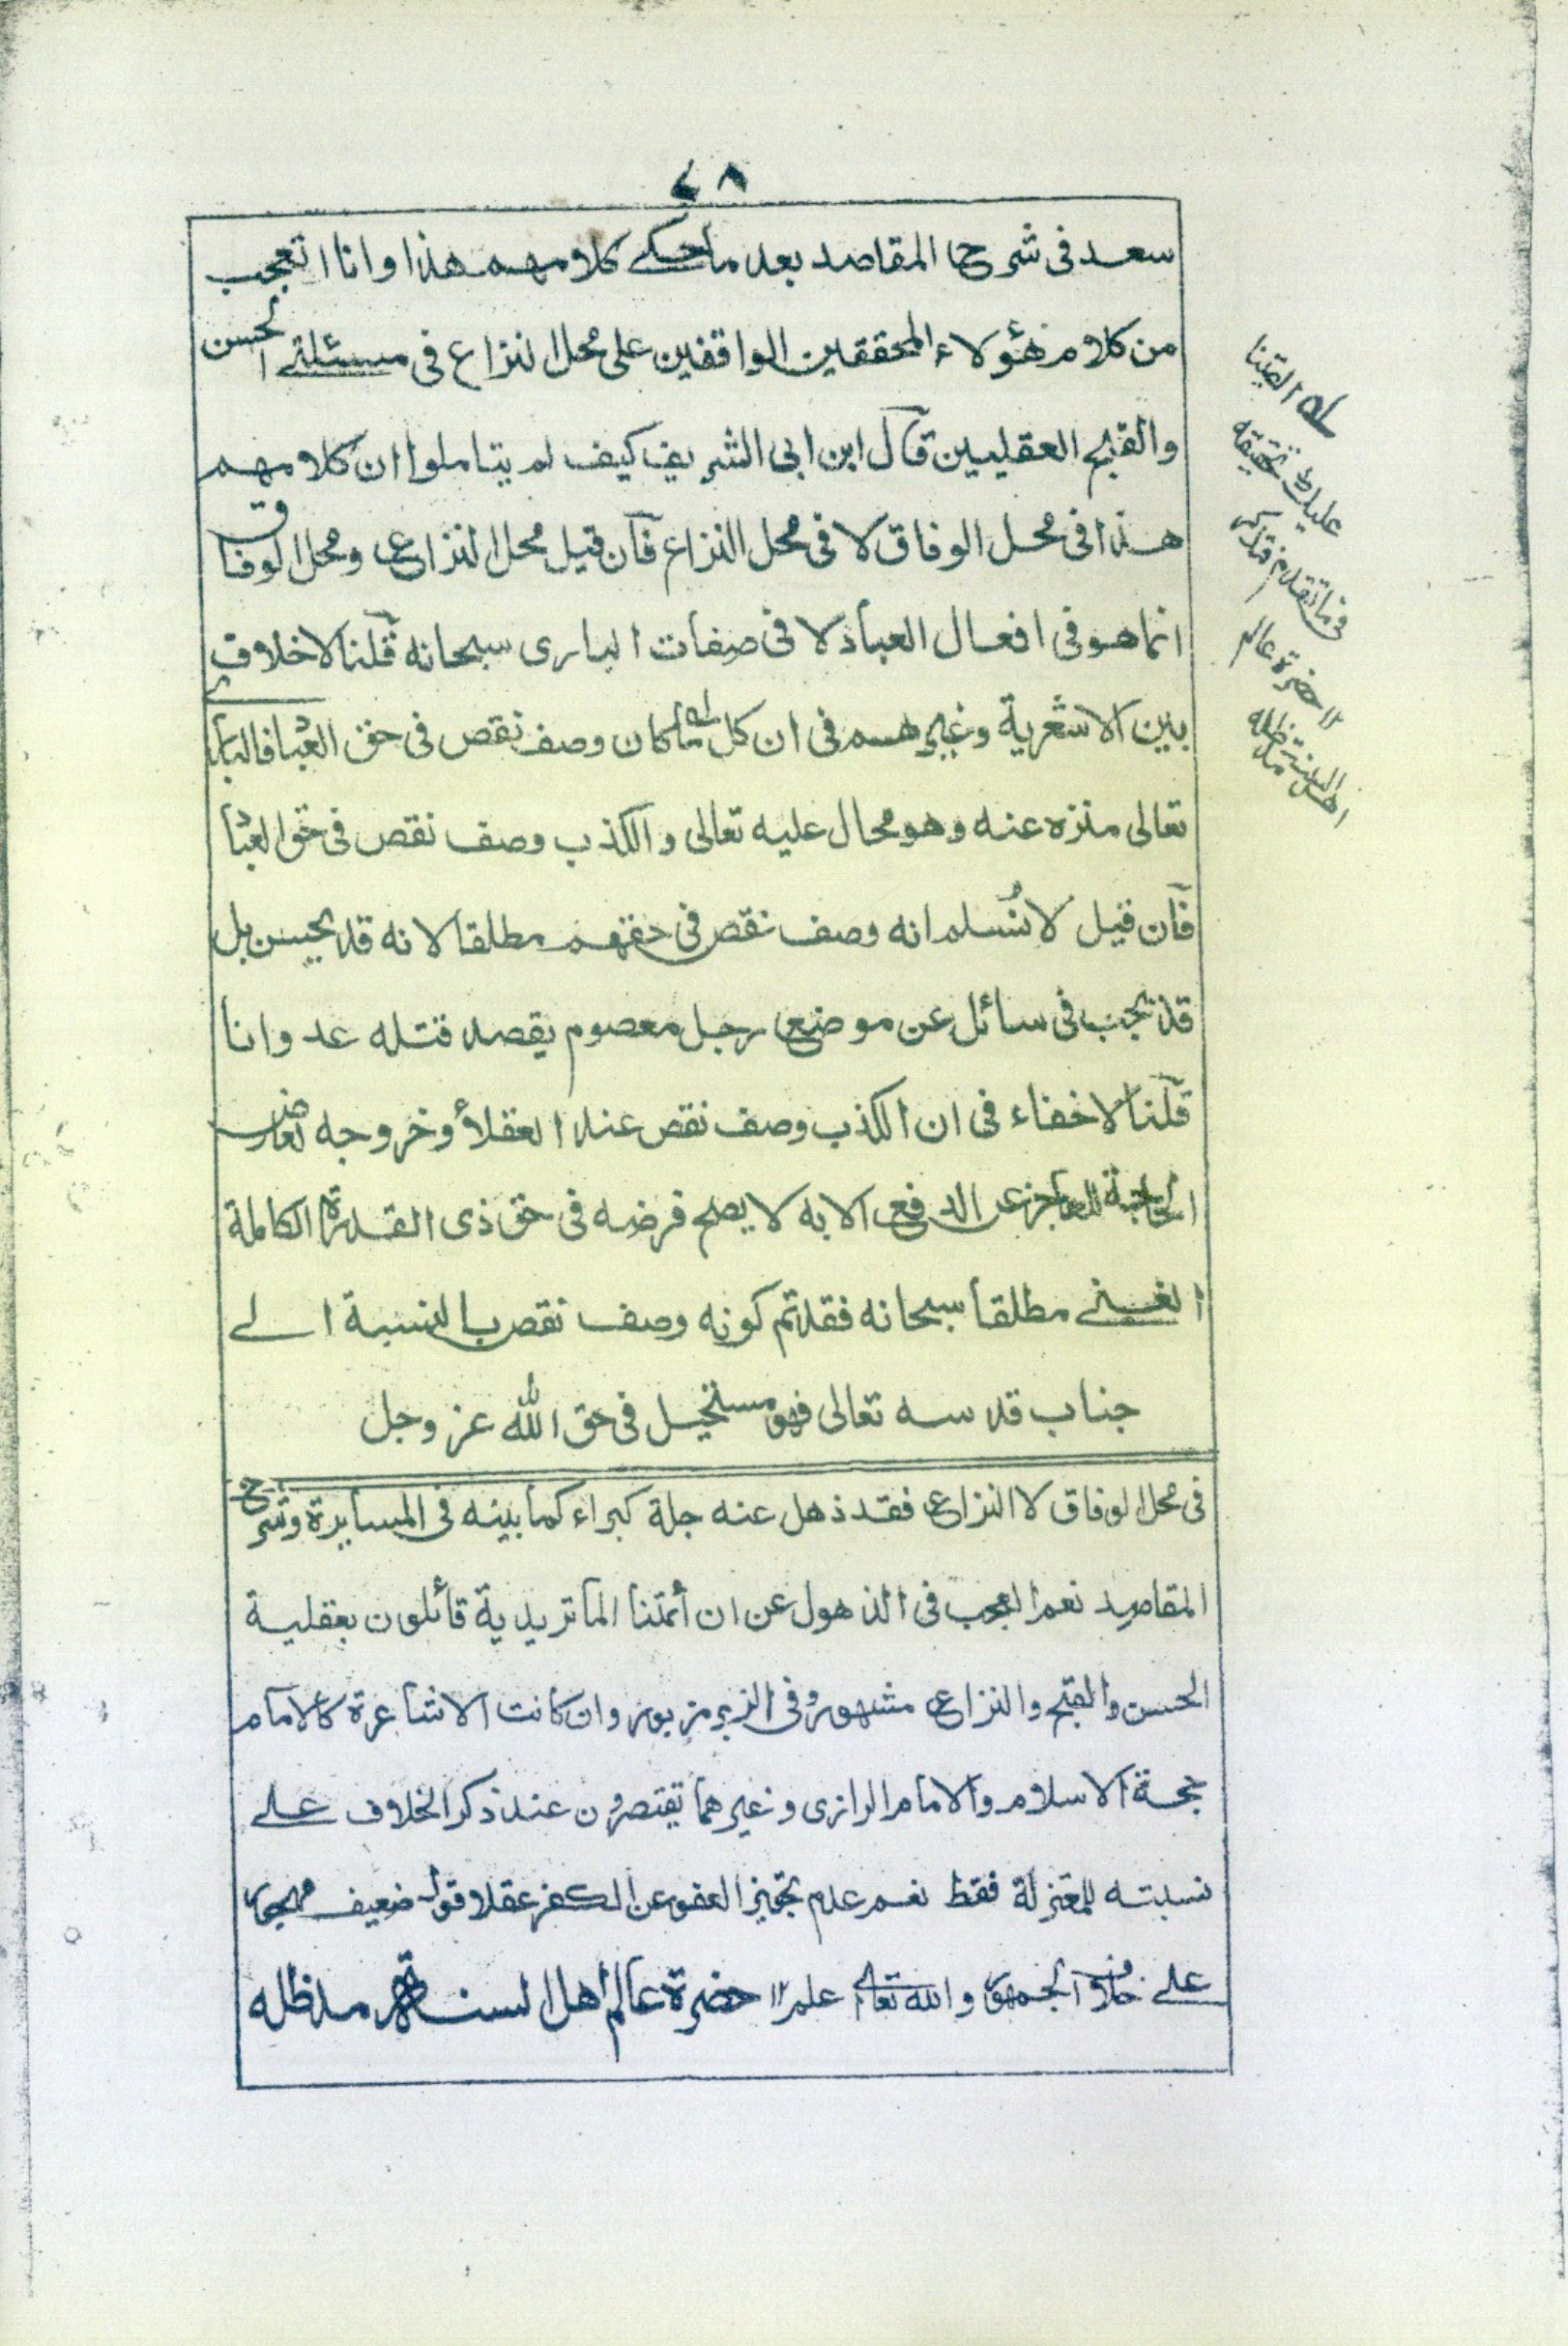 ٤٨
سعد فى شرح المقاصد بعد ما حكى كلامهم هذا وانا اتعجب
من كلام هؤلاء المحققين الواقفين على محل النزاع فى مسئلة الحسن
والقبح العقليين قال ابن ابى الشريف كيف لم يتاملوا ان كلامهم
هذا فى محل الوفاق لا فى محل النزاع فان قيل محل النزاع ومحل الوفاق
انما هو فى افعال العباد لا فى صفات البارى سبحانه قلنا لا خلاف
بين الاشعرية وغيرهم فى ان كل ما كان وصف نقص فى حق العباد فالبارى
تعالى منزه عنه وهو محال عليه تعالى والكذب وصف نقص فى حق العباد
فان قيل لا نُسلم انه وصف نقص فى حقهم مطلقا لانه قد يحسن بل
قد يجب فى سائل عن موضع رجل معصوم يقصد قتله عدوانا
قلنا لا خفاء فى ان الكذب وصف نقص عند العقلاء وخروجه لعارض
الحاجة للعاجز عن الدفع الا به لا يصح فرضه فى حق ذى القدرة الكاملة
الغنى مطلقا سبحانه فقد تم كونه وصف نقص بالنسبة الى
جناب قدسه تعالى فهو مستحيل فى حق الله عز وجل
فى محل الوفاق لا النزاع فقد ذهل عنه جلة كبراء كما بينه فى المسايرة وشرح
المقاصد نعم العجب فى الذهول عن ان أئمتنا الماتريدية قائلون بعقلية
الحسن والقبح والنزاع مشهور وفى الزبر مزبور وان كانت الاشاعرة كالامام
حجة الاسلام والامام الرازى وغيرهما يقتصرون عند ذكر الخلاف على
نسبته للمعتزلة فقط نعم عدم تجويز العفو عن الكفر عقلا قول ضعيف مهجور
على خلاف الجمهور والله تعالى اعلم ١٢ حضرة عالم اهل السنة مد ظله
له القينا
عليك تحقيقه
فى ما تقدم فتذكر
١٢ حضرة عالم
اهل السنة مد ظله